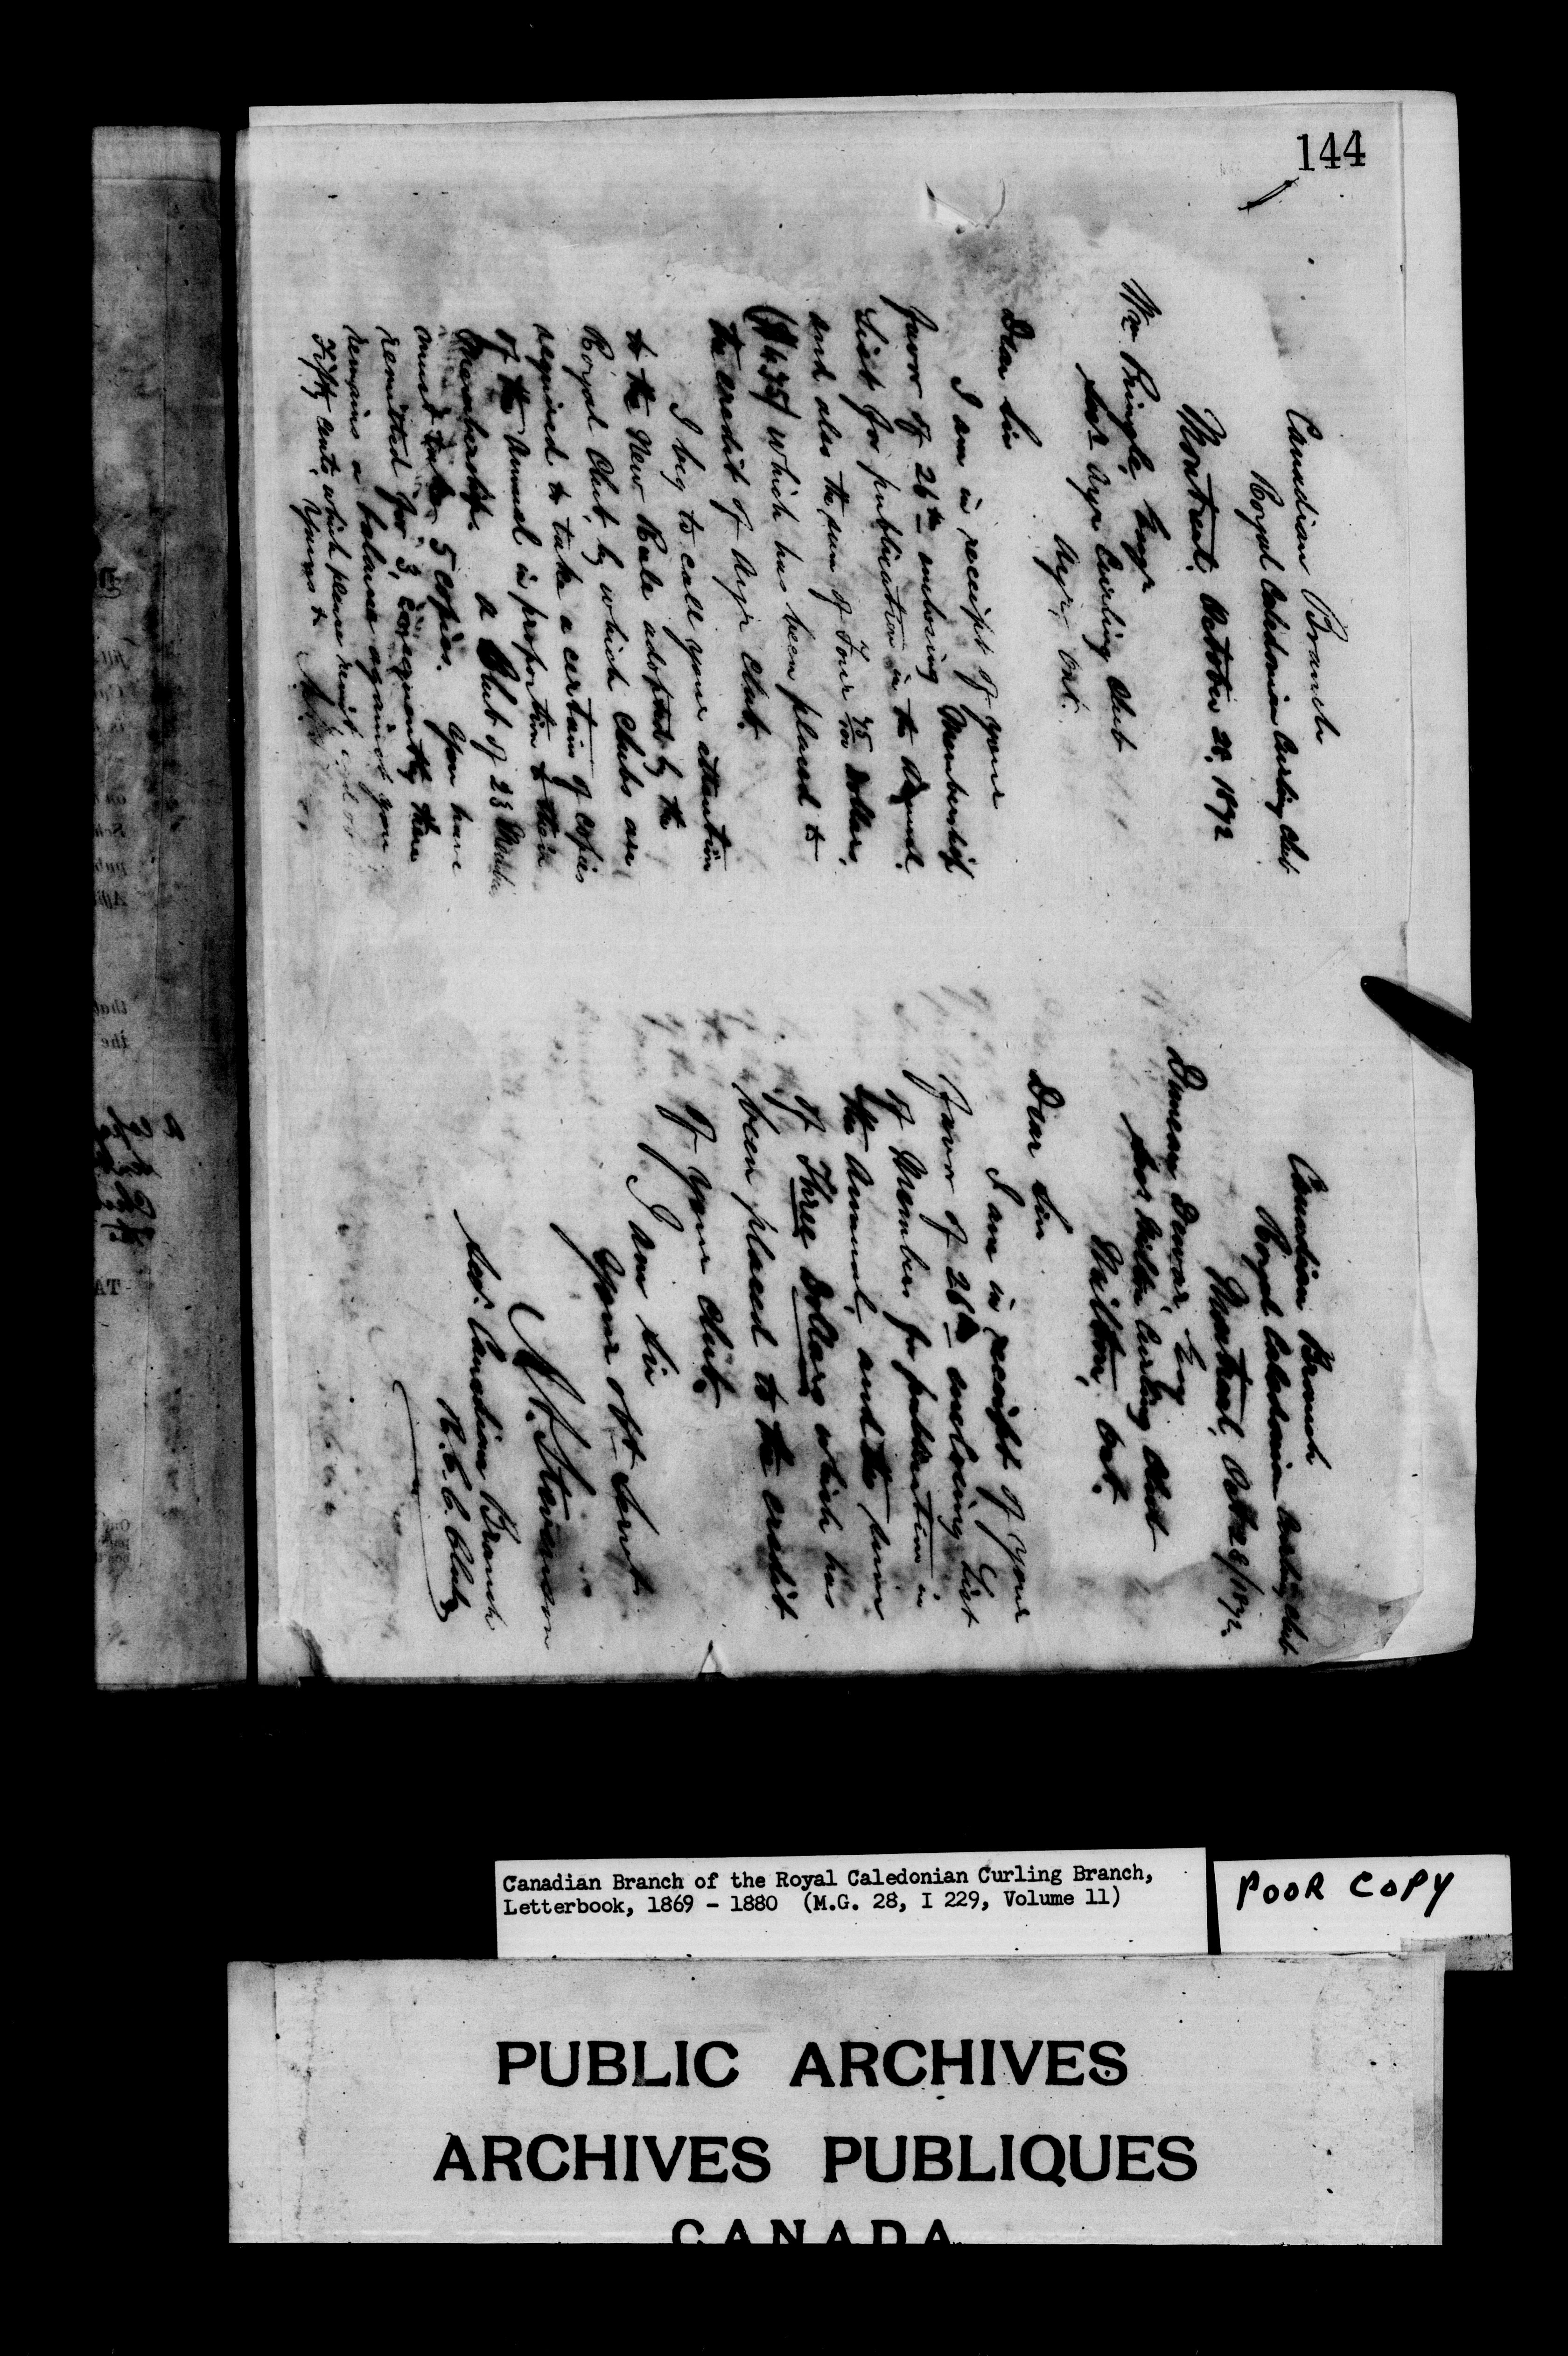 144
Canadian Branch
Royal Caledonian Curling Club
Montreal, October 28, 1872
Wm Pringle Esqr
Secr Ayr Curling Club
Ayr, Ont.
Dear Sir
I am in receipt of your
favor of 26th enclosing Membership
List for publication in the Annual
and also the sum of Four 75/100 Dollars,
($4.75) which has been placed to
the credit of Ayr Club.
I beg to call your attention
to the New Rule adopted by the
Royal Club, by which Clubs are
required to take a certain of copies
of the Annual in proportion to their
Membership. A Club of 23 Members
must take 5 copies. You have
remitted for 3, consequently there
remains a balance against you
Fifty cents, which please remit
Yours &
Canadian Branch
Royal Caledonian Curling Club
Montreal, Oct 28/1872
Duncan Dewar, Esq
Secr Milton Curling Club
Milton, Ont.
Dear Sir
I am in receipt of your
favor of 26th enclosing List
of Members for publication in
the Annual, and the sum
of Three Dollars which has
been placed to the credit
of your Club.
I am Sir
Your Obt Servt.
A. Stevenson
Secr. Canadian Branch
R. C. C. Club
Canadian Branch of the Royal Caledonian Curling Branch,
Letterbook, 1869 - 1880 (M.G. 28, I 229, Volume 11)
POOR COPY
PUBLIC ARCHIVES
ARCHIVES PUBLIQUES
CANADA